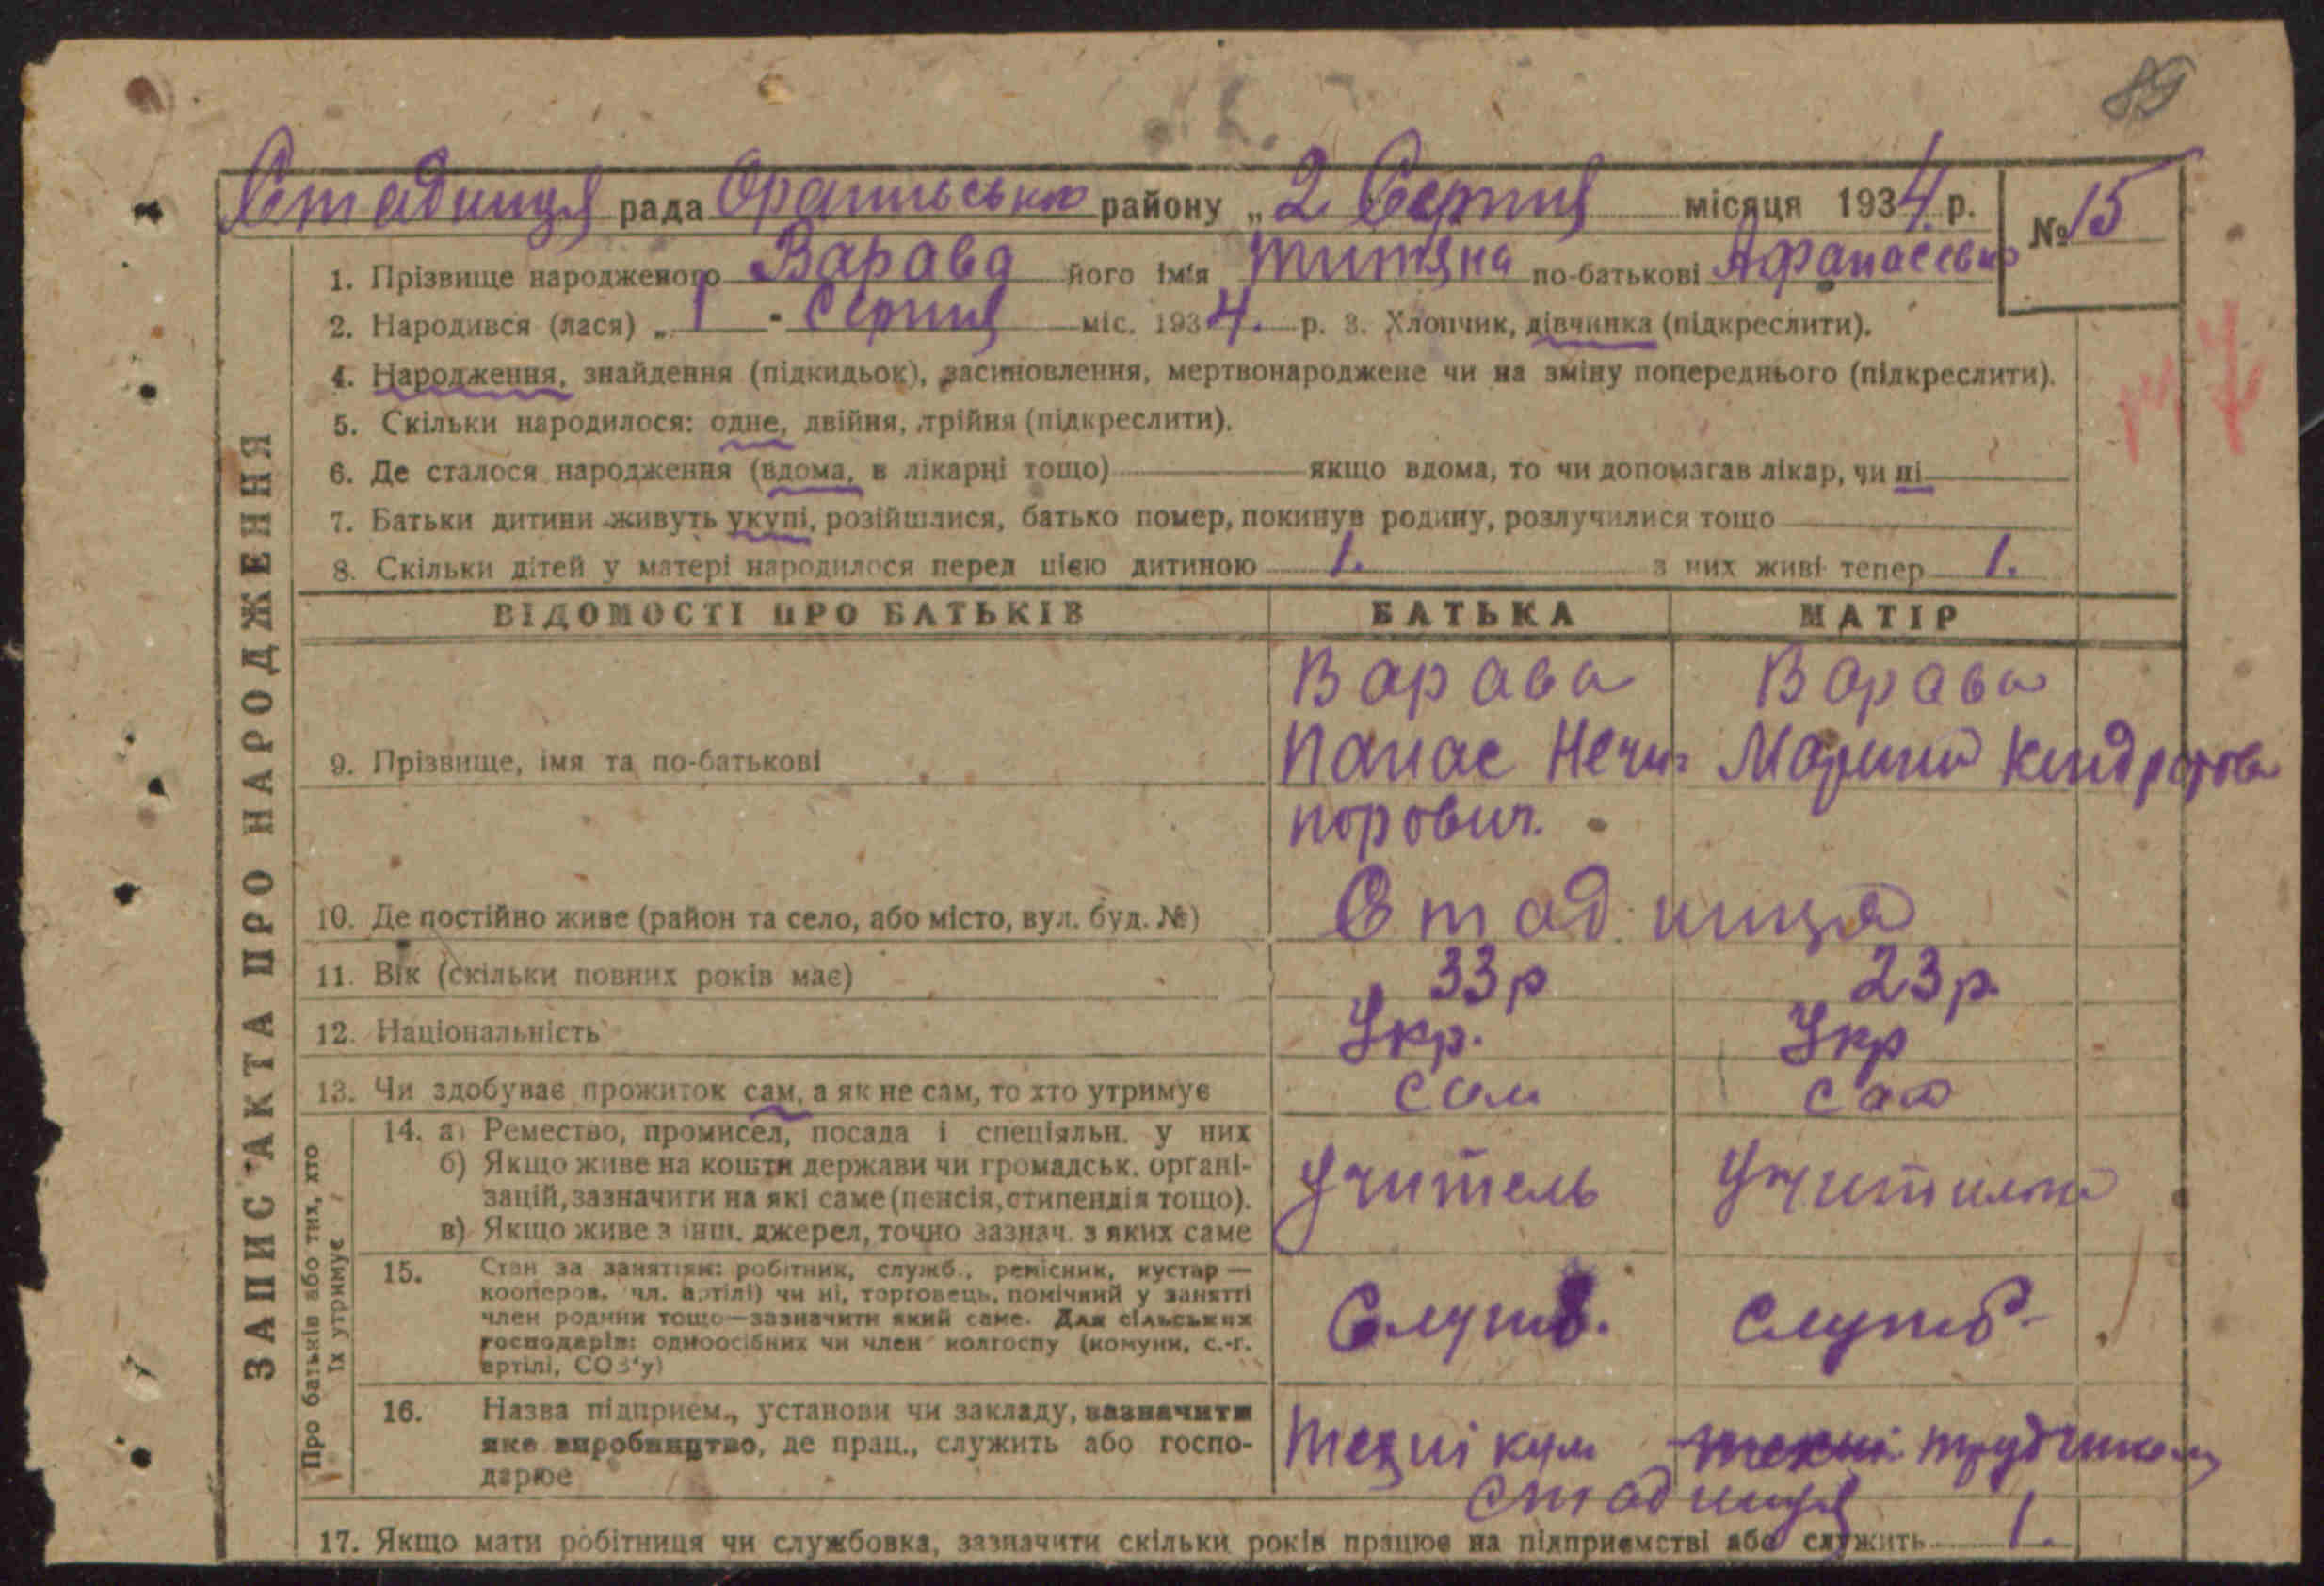 89
Стадниця рада Оратівсько району „2 Серпня місяця 1934 р. № 15
1. Прізвище народженого Варава його ім'я Титяна по-батькові Афанасевно
2. Народився (лася) „ 1 - Серпня міс. 1934. р. 3. Хлопчик, дівчинка (підкреслити).
4. Народження, знайдення (підкидьок), засиновлення, мертвонароджене чи на зміну попереднього (підкреслити).
5. Скільки народилося: одне, двійня, трійня (підкреслити).
6. Де сталося народження (вдома, в лікарні тощо) якщо вдома, то чи допомагав лікар, чи ні
7. Батьки дитини живуть укупі, розійшлися, батько помер, покинув родину, розлучилися тощо
8. Скільки дітей у матері народилося перед цією дитиною 1. з них живі тепер 1.
ЗАПИС АКТА ПРО НАРОДЖЕННЯ
ВІДОМОСТІ ПРО БАТЬКІВ БАТЬКА МАТІР
Варава Варава
9. Прізвище, імя та по-батькові Панас Нечи- Марина Кіндратова
порович.
10. Де постійно живе (район та село, або місто, вул. буд. №) Стадниця
11. Вік (скільки повних років має) 33р 23р.
12. Національність Укр. Укр
13. Чи здобуває прожиток сам, а як не сам, то хто утримує сам сама
Про батьків або тих, хто
їх утримує
14. а) Ремество, промисел, посада і спеціяльн. у них
б) Якщо живе на кошти держави чи громадськ. органі-
зацій, зазначити на які саме (пенсія, стипендія тощо). Учитель
в) Якщо живе з інш. джерел, точно зазнач. з яких саме
15. Стан за заняттям: робітник, служб., ремісник, кустар —
кооперов. чл. артілі) чи ні, торговець, помічний у занятті
член родини тощо—зазначити який саме. Для сільських Служб. Служб.
господарів: одноосібних чи член колгоспу (комуни, с.-г.
артілі, СОЗ'у)
16. Назва підприєм., установи чи закладу, зазначити
яке виробництво, де прац., служить або госпо- Технікум
дарює Стадниця
17. Якщо мати робітниця чи службовка, зазначити скільки років працює на підприємстві або служить 1.